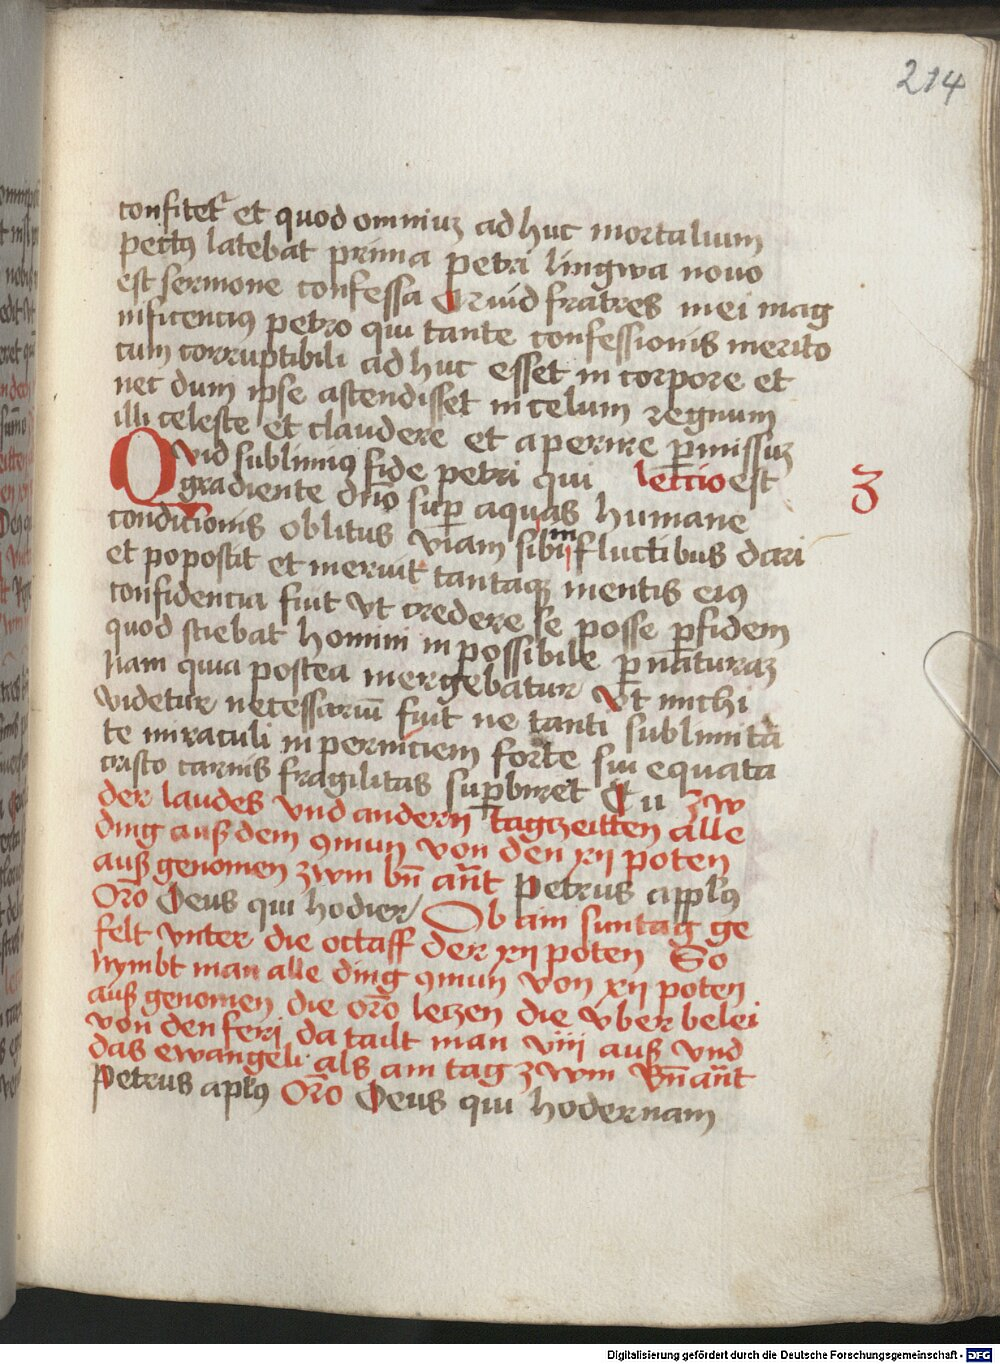 214
confitet᷑ et quod omniuꝫ ad huc mortalium
pectꝯ latebat prima petri lingwa nouo
est sermone confessa Quid fratres mei mag
nificencius petro qui tante confessionis merito
cum corruptibili ad huc esset in corpore et
nec dum ipse astendisset in celum regnum
illi celeste et claudere et aperire ꝑmissuꝫ
Quid sublimiꝯ fide petri qui lectio est 3
gradiente dn̄o suꝑ aquas humane
condic̄ionis oblitus viam sibi in fluctibus dari
et poposcit et meruit tantaqꝫ mentis eiꝯ
confidencia fuit vt credere se posse ꝑ fidem
quod sciebat homini inpossibile ꝑ naturaꝫ
Nam quia postea mergebatur vt michi
videtur necessariū fuit ne tanti sublimita
te miraculi in perniciem forte sui equata
cristo carnis fragilitas suꝑbiret Tu Zw
der laudes vnd andern tagzeitten alle
ding auß dem ꝯmun von den xij poten
auß genomen zwm bn̄ an̄t Petrus appl̄ꝯ
Orō Deus qui hodier Ob ain suntag ge
felt vnter die octaff der xij poten So
nymbt man alle ding ꝯmun von xij poten
auß genomen die orō leczen die vber belei
von den feri da tailt man viii auß vnd
das ewangeli als am tag zwm bn̄ an̄t
Petrus apl̄ꝯ Orō Deus qui hodernam
Digitalisierung gefördert durch die Deutsche Forschungsgemeinschaft - DFG